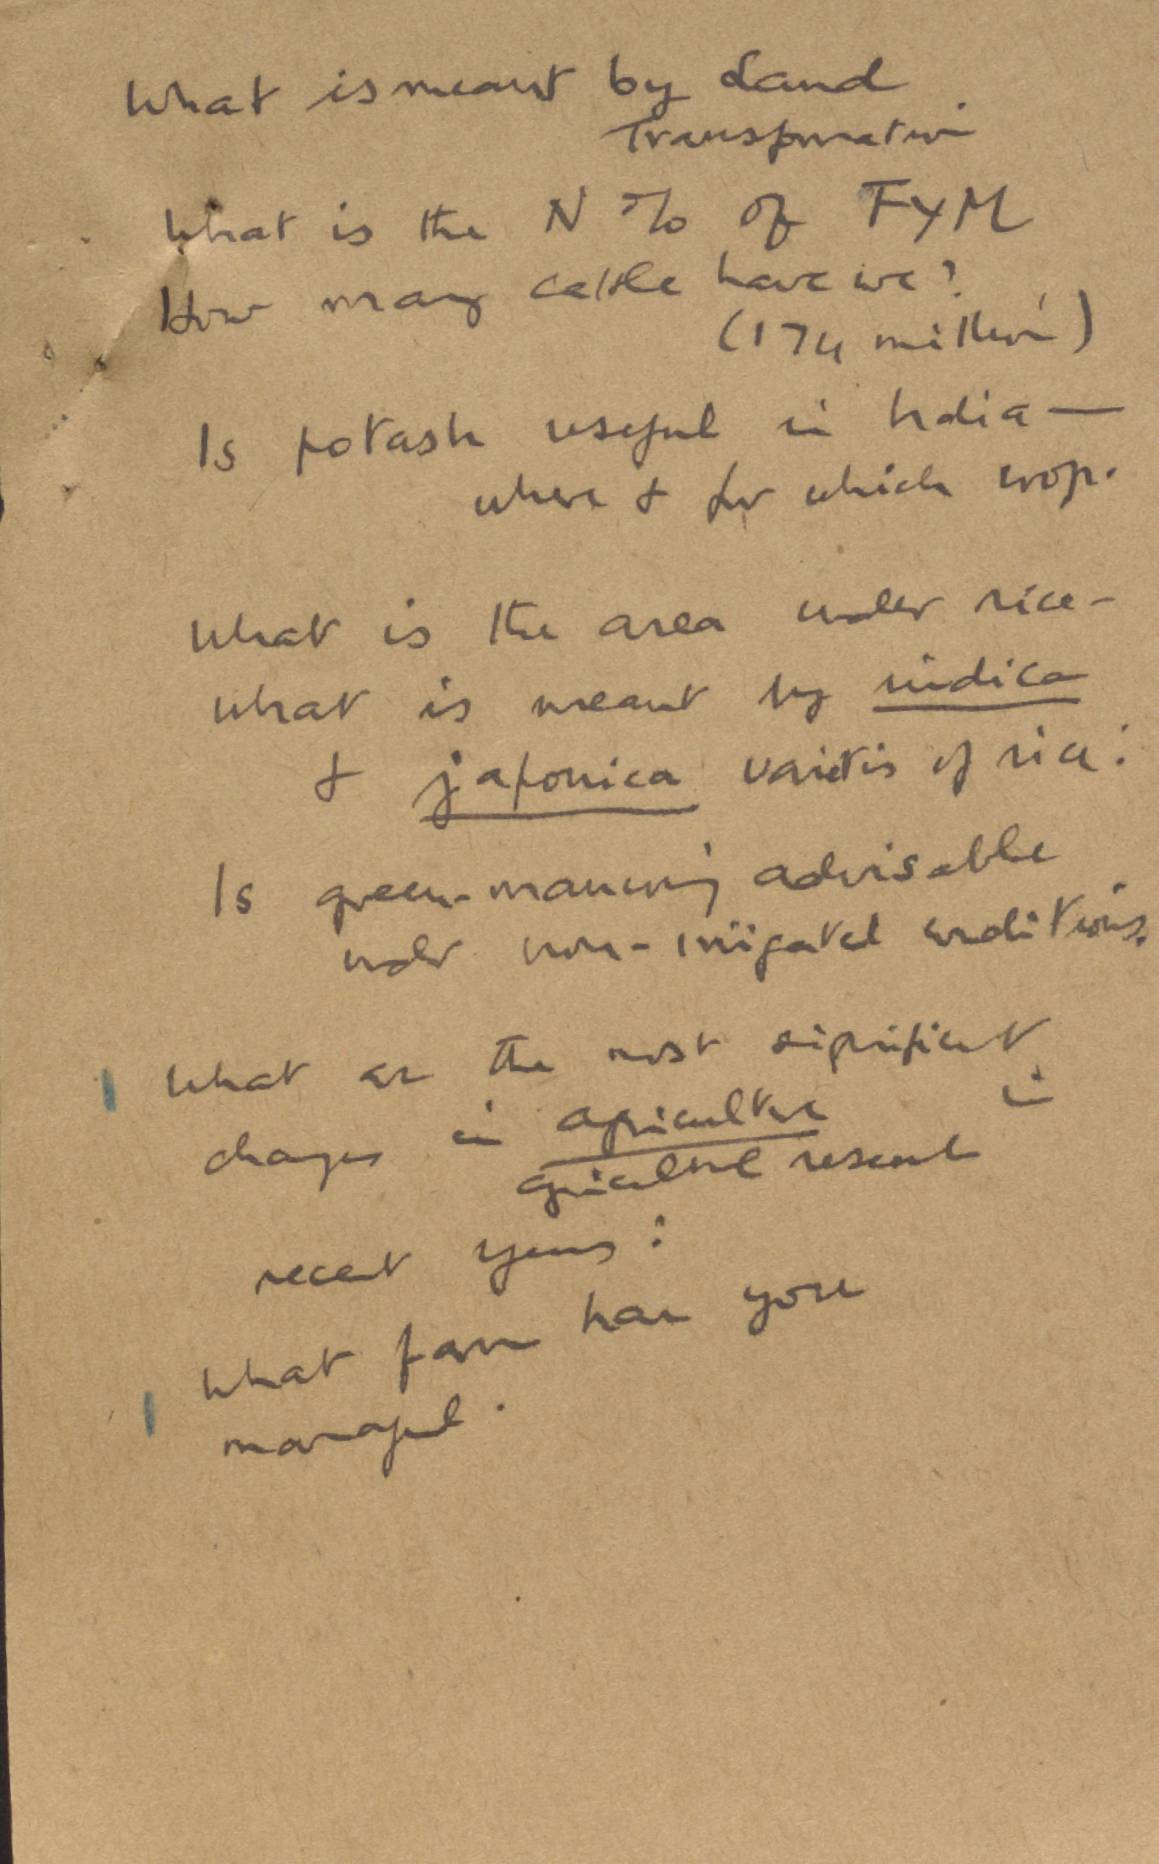 What is meant by Land
Transformation
What is the N % of FYM
How many cattle have we?
(174 million)
Is potash useful in India —
where & for which crop.
What is the area under rice -
What is meant by indica
& japonica varieties of rice?
Is green-manuring advisable
under non-irrigated conditions.
What are the most significant
changes in agriculture in
agricultural research
recent years?
What farm have you
managed.